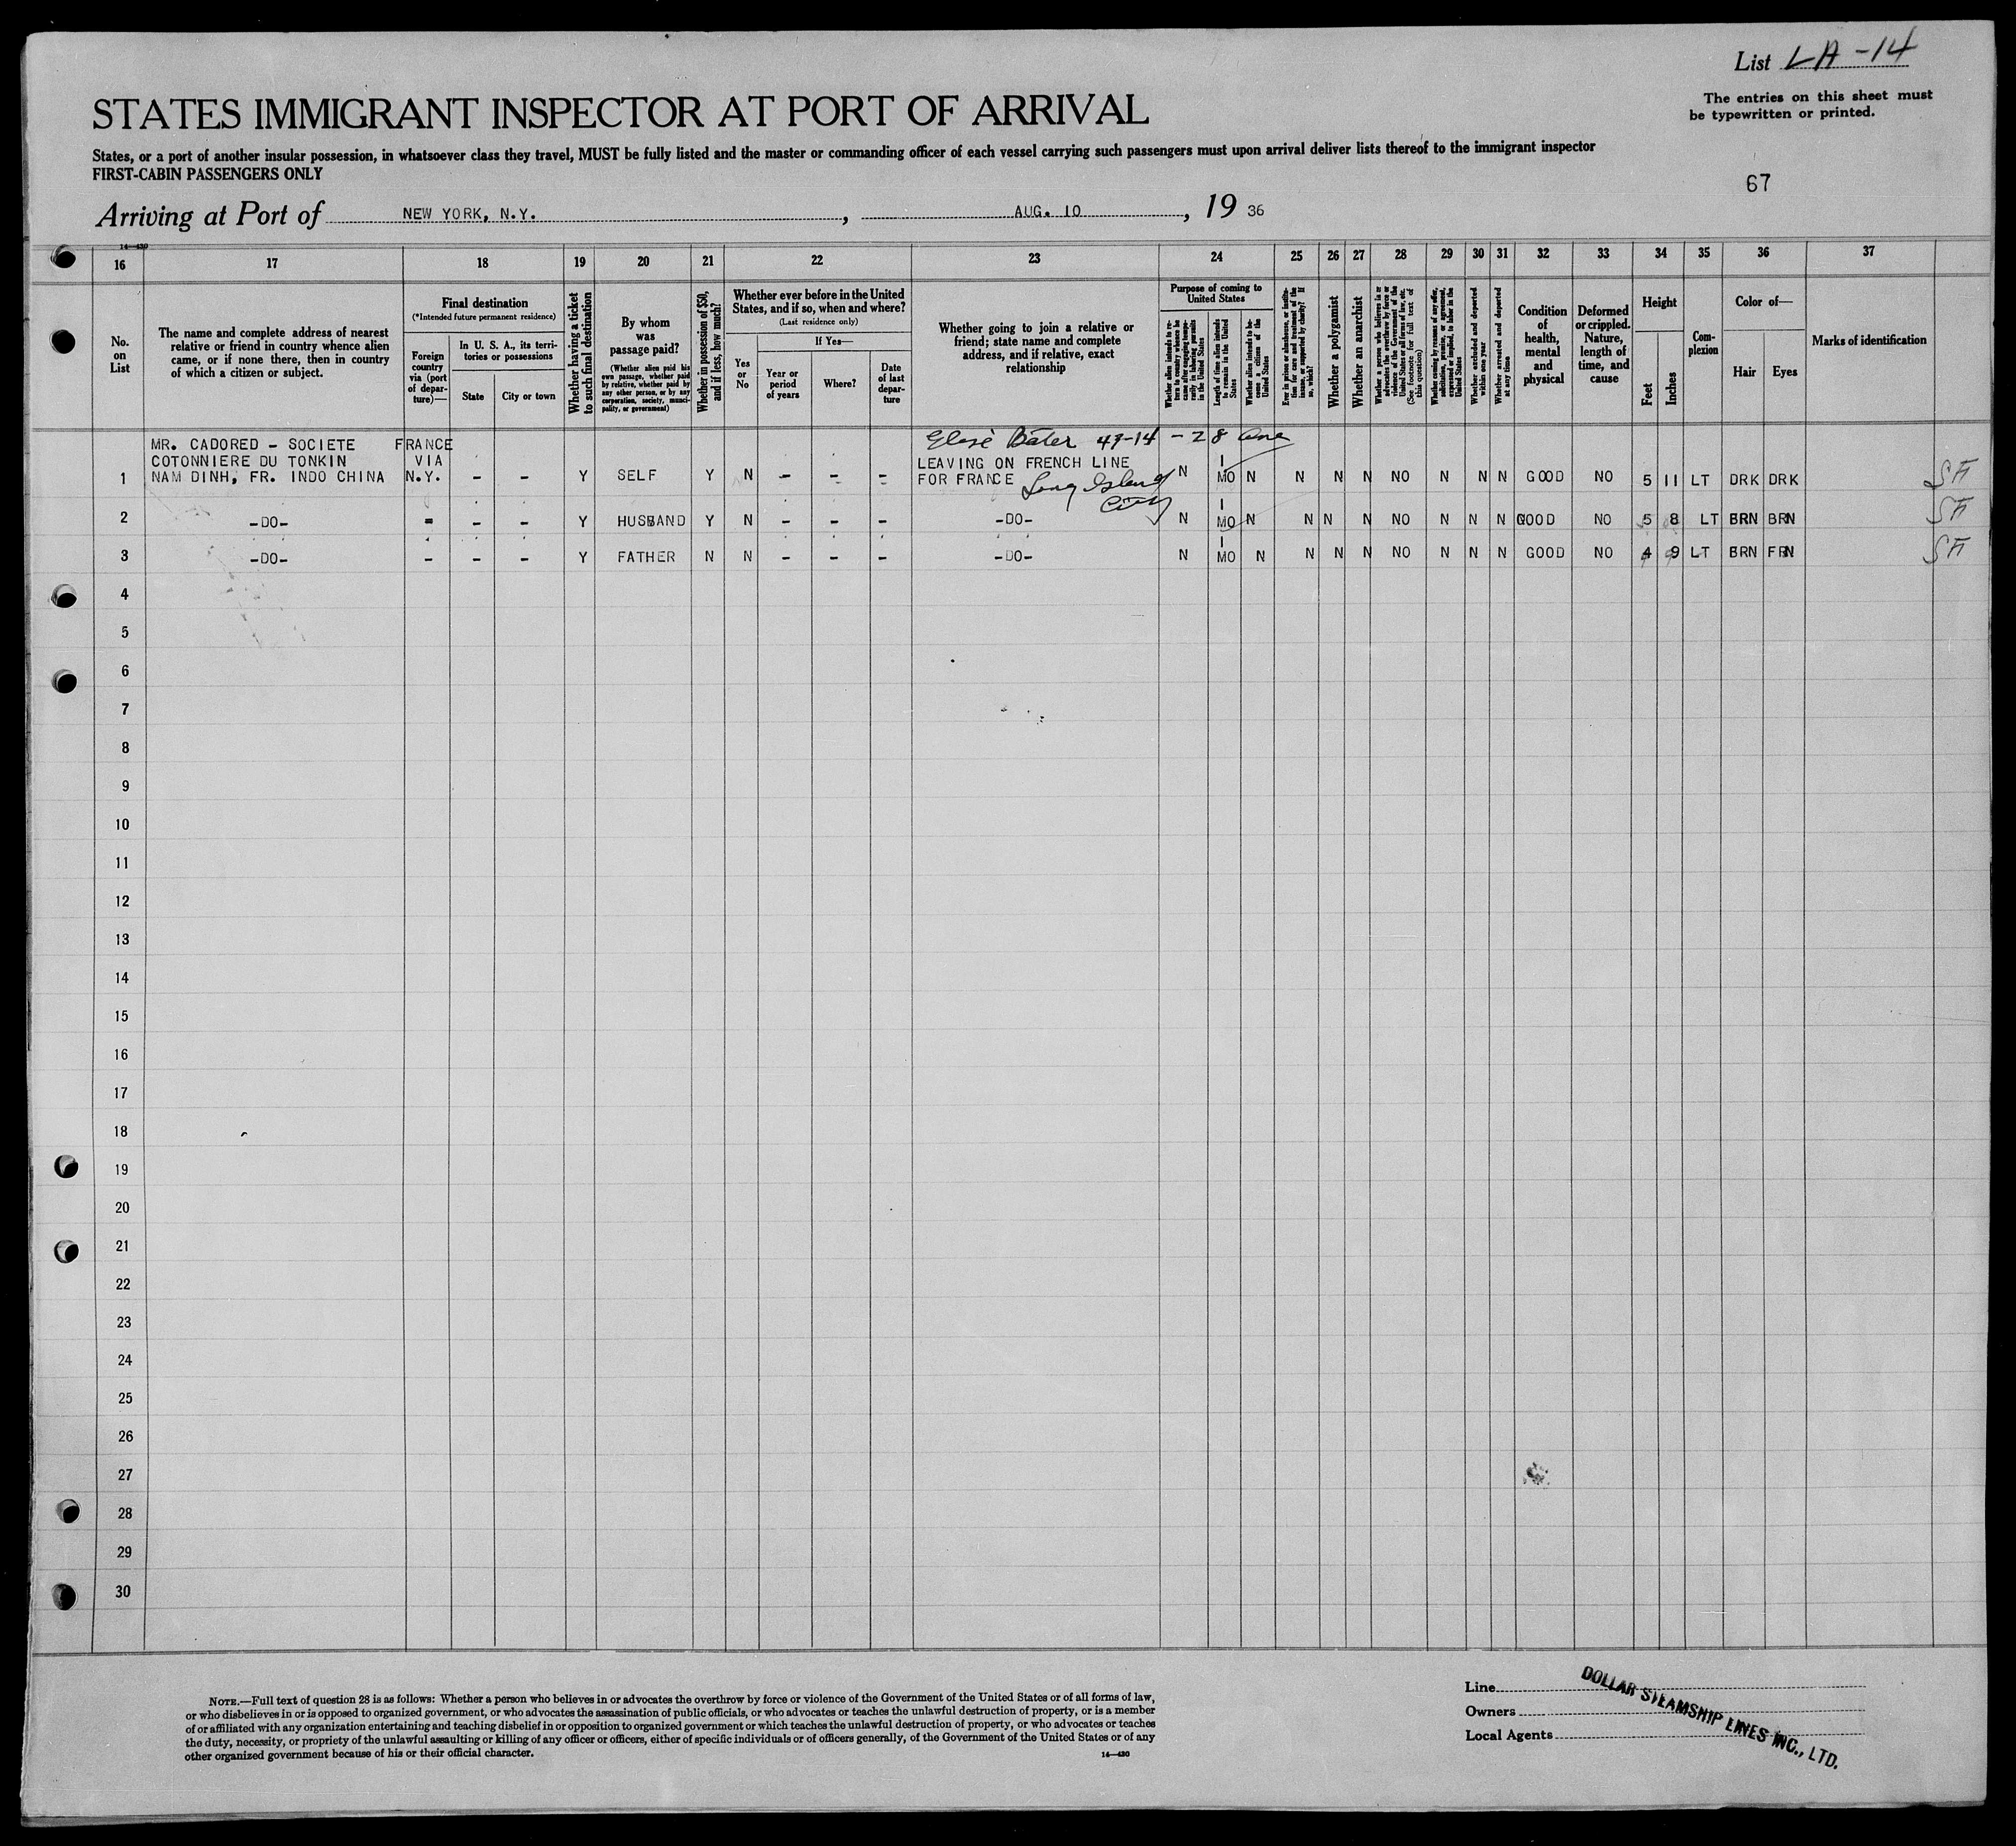 List LA-14
The entries on this sheet must
be typewritten or printed.
STATES IMMIGRANT INSPECTOR AT PORT OF ARRIVAL
States, or a port of another insular possession, in whatsoever class they travel, MUST be fully listed and the master or commanding officer of each vessel carrying such passengers must upon arrival deliver lists thereof to the immigrant inspector
FIRST-CABIN PASSENGERS ONLY
67
Arriving at Port of NEW YORK, N.Y. , AUG. 10 , 19 36
14—430
16 17 18 19 20 21 22 23 24 25 26 27 28 29 30 31 32 33 34 35 36 37
No.
on
List
The name and complete address of nearest
relative or friend in country whence alien
came, or if none there, then in country
of which a citizen or subject.
Final destination
(*Intended future permanent residence)
Foreign
country
via (port
of depar-
ture)—
In U. S. A., its terri-
tories or possessions
State
City or town
Whether having a ticket
to such final destination
By whom
was
passage paid?
(Whether alien paid his
own passage, whether paid
by relative, whether paid by
any other person, or by any
corporation, society, munici-
pality, or government)
Whether in possession of $50,
and if less, how much?
Whether ever before in the United
States, and if so, when and where?
(Last residence only)
Yes
or
No
If Yes—
Year or
period
of years
Where?
Date
of last
depar-
ture
Whether going to join a relative or
friend; state name and complete
address, and if relative, exact
relationship
Purpose of coming to
United States
Whether alien intends to re-
turn to country whence he
came after engaging tempo-
rarily in laboring pursuits
in the United States
Length of time alien intends
to remain in the United
States
Whether alien intends to be-
come a citizen of the
United States
Ever in prison or almshouse, or institu-
tion for care and treatment of the
insane, or supported by charity? If
so, which?
Whether a polygamist
Whether an anarchist
Whether a person who believes in or
advocates the overthrow by force or
violence of the Government of the
United States or all forms of law, etc.
(See footnote for full text of
this question)
Whether coming by reason of any offer,
solicitation, promise, or agreement,
expressed or implied, to labor in the
United States
Whether excluded and deported
within one year
Whether arrested and deported
at any time
Condition
of
health,
mental
and
physical
Deformed
or crippled.
Nature,
length of
time, and
cause
Height
Feet
Inches
Com-
plexion
Color of—
Hair
Eyes
Marks of identification
MR. CADORED - SOCIETE FRANCE 47-14 - 28
COTONNIERE DU TONKIN VIA LEAVING ON FRENCH LINE 1
1 NAM DINH, FR. INDO CHINA N.Y. - - Y SELF Y N - - - FOR FRANCE N MO N N N N NO N N N GOOD NO 5 11 LT DRK DRK
Long Island
City
1
2 -DO- - - - Y HUSBAND Y N - - - -DO- N MO N N N N NO N N N GOOD NO 5 8 LT BRN BRN
1
3 -DO- - - - Y FATHER N N - - - -DO- N MO N N N N NO N N N GOOD NO 4 9 LT BRN
4
5
6
7
8
9
10
11
12
13
14
15
16
17
18
19
20
21
22
23
24
25
26
27
28
29
30
NOTE.—Full text of question 28 is as follows: Whether a person who believes in or advocates the overthrow by force or violence of the Government of the United States or of all forms of law,
or who disbelieves in or is opposed to organized government, or who advocates the assassination of public officials, or who advocates or teaches the unlawful destruction of property, or is a member
of or affiliated with any organization entertaining and teaching disbelief in or opposition to organized government or which teaches the unlawful destruction of property, or who advocates or teaches
the duty, necessity, or propriety of the unlawful assaulting or killing of any officer or officers, either of specific individuals or of officers generally, of the Government of the United States or of any
other organized government because of his or their official character.
14—430
Line
Owners
Local Agents
DOLLAR STEAMSHIP LINES INC., LTD.